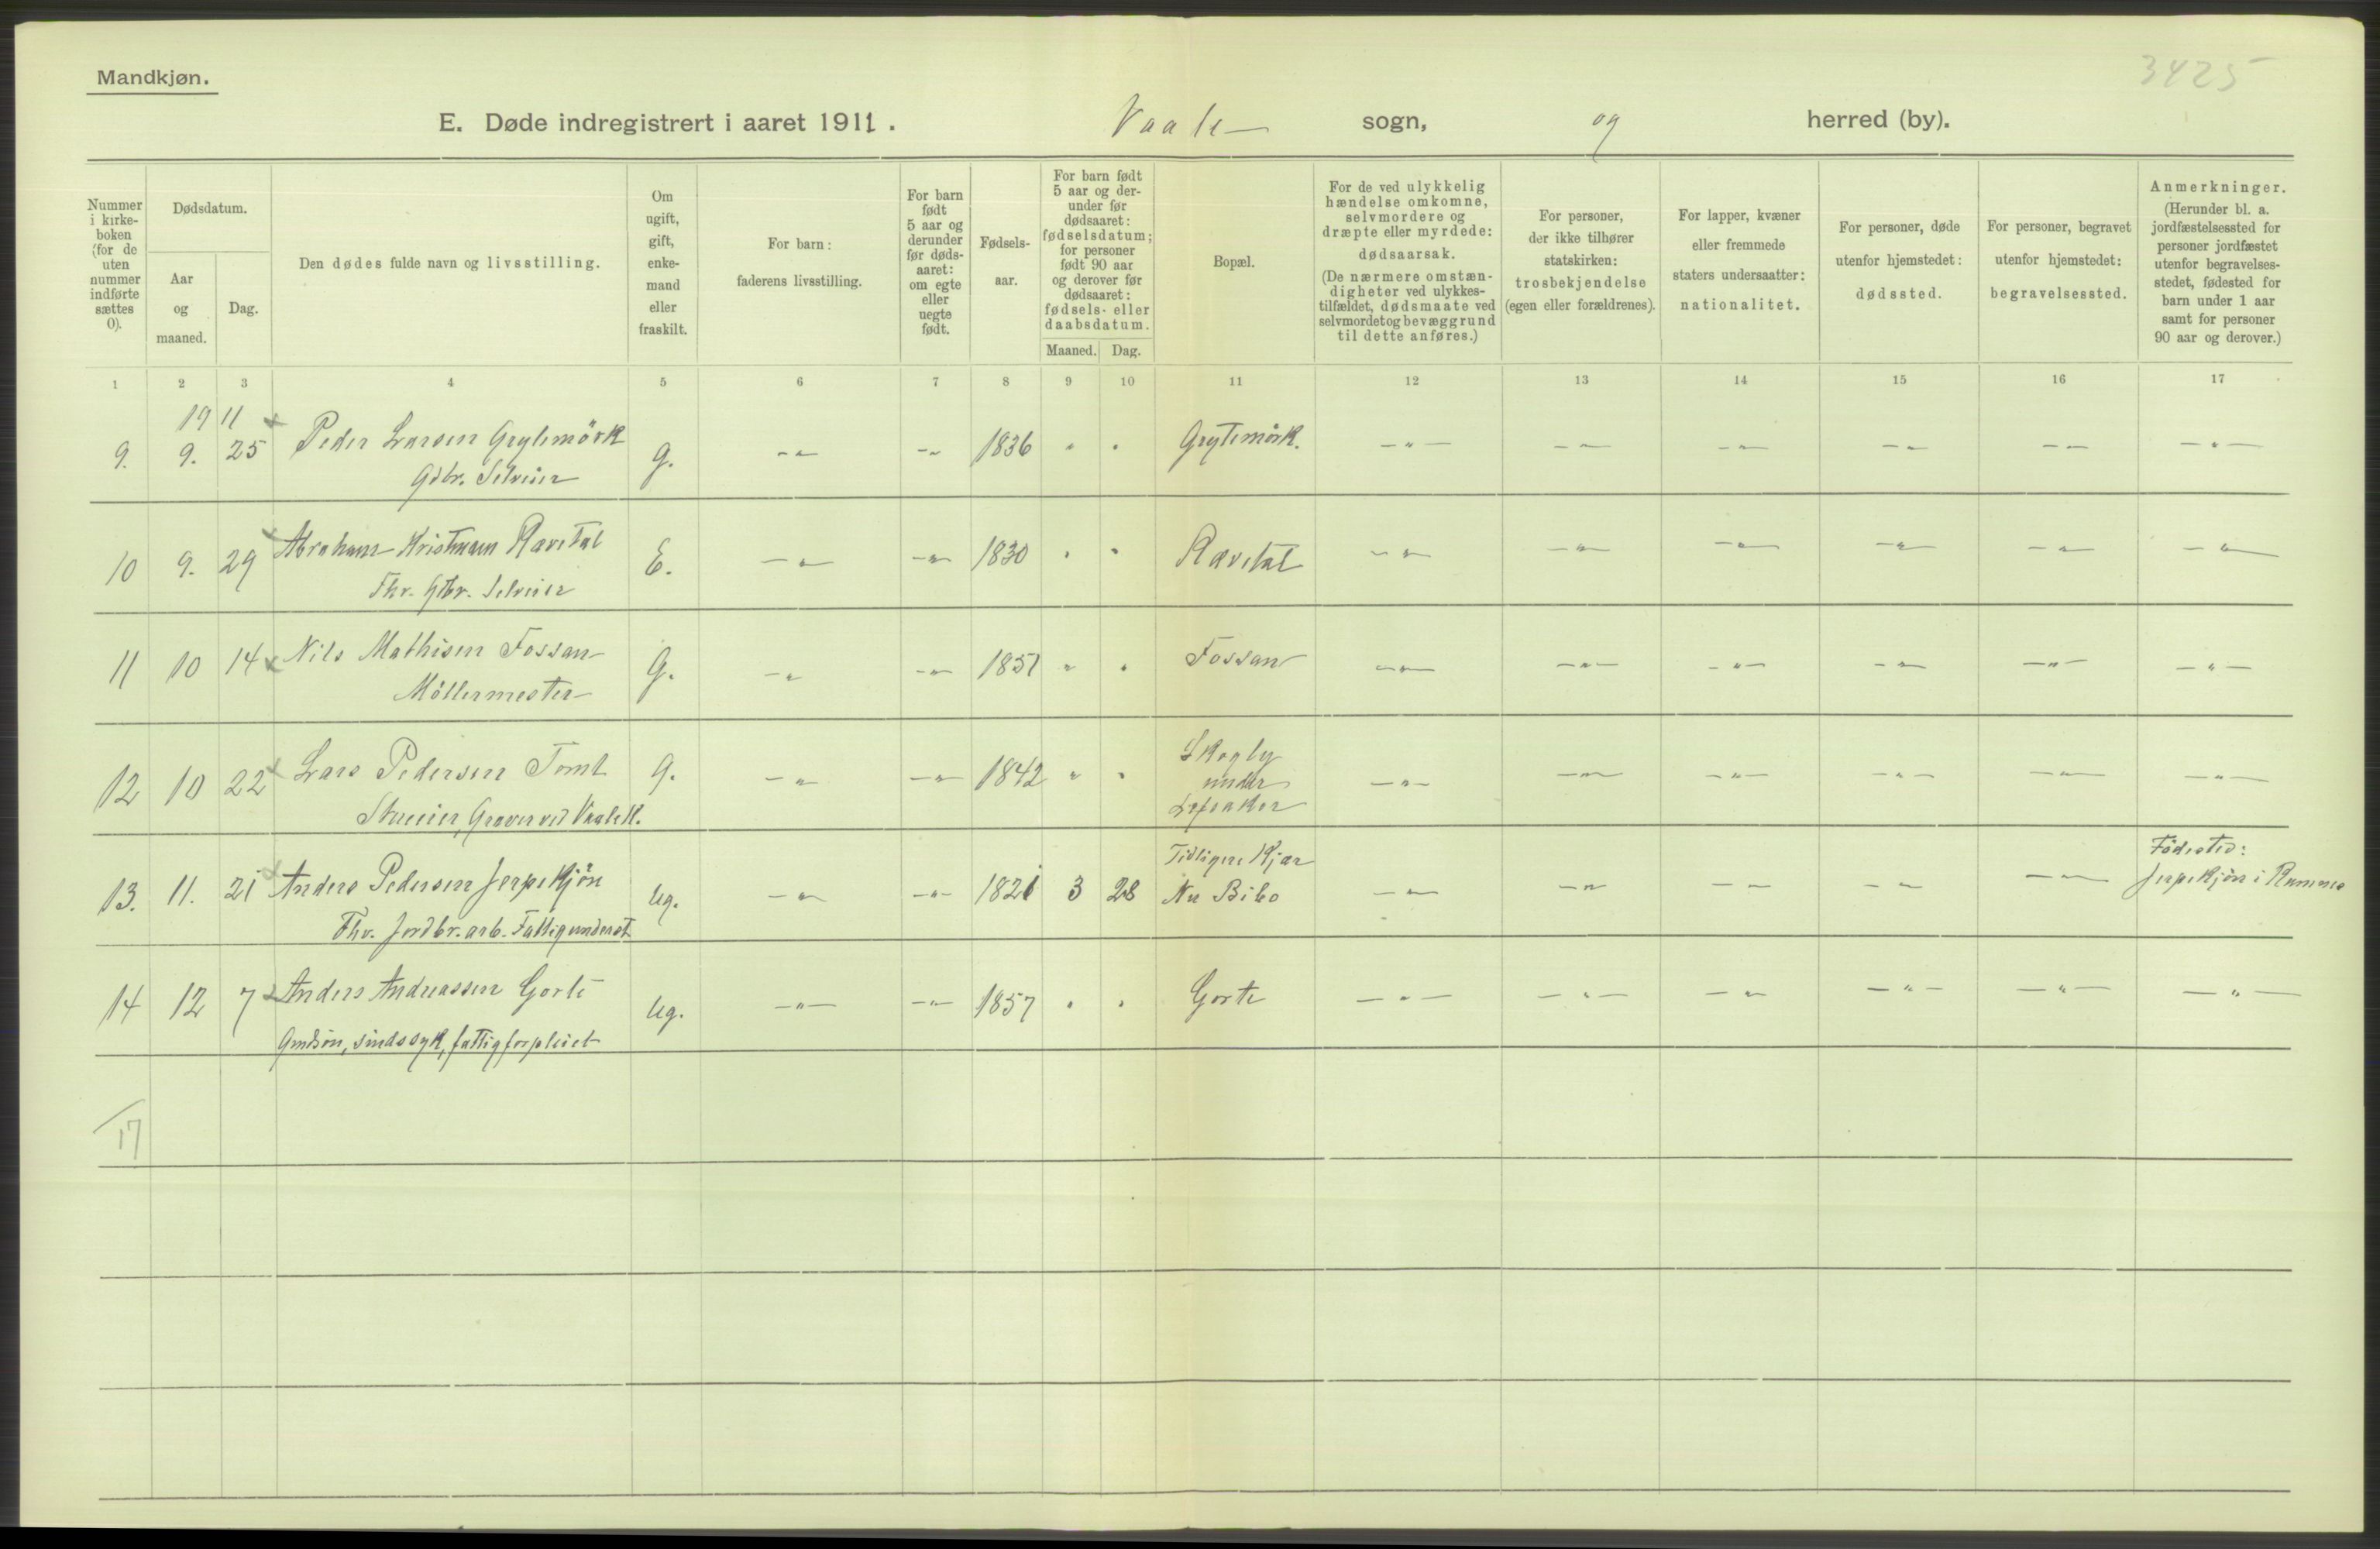 Mandkjøn.
3425
E. Døde indregistrert i aaret 1911. Vaale sogn, og herred (by).
Nummer i kirkeboken (for de uten nummer indførte sættes 0).
Dødsdatum.
Aar og maaned.
Dag.
Den dødes fulde navn og livsstilling.
Om ugift, gift, enkemand eller fraskilt.
For barn: faderens livsstilling.
For barn født 5 aar og derunder før dødsaaret: om egte eller uegte født.
Fødselsaar.
For barn født 5 aar og derunder før dødsaaret: fødselsdatum; for personer født 90 aar og derover før dødsaaret: fødsels- eller daabsdatum.
Maaned. Dag.
Bopæl.
For de ved ulykkelig hændelse omkomne, selvmordere og dræpte eller myrdede: dødsaarsak.
(De nærmere omstændigheter ved ulykkestilfældet, dødsmaate ved selvmordet og bevæggrund til dette anføres.)
For personer, der ikke tilhører statskirken: trosbekjendelse (egen eller forældrenes).
For lapper, kvæner eller fremmede staters undersaatter: nationalitet.
For personer, døde utenfor hjemstedet: dødssted.
For personer, begravet utenfor hjemstedet: begravelsessted.
Anmerkninger.
(Herunder bl. a. jordfæstelsessted for personer jordfæstet utenfor begravelsesstedet, fødested for barn under 1 aar samt for personer 90 aar og derover.)
1 2 3 4 5 6 7 8 9 10 11 12 13 14 15 16 17
1911
9. 9. 25 Peder Larsen Grytemörk G. -"- -"- 1836 " " Grytemörk. -"- -"- -"- -"- -"- -"-
Gdbr. Selveier
10 9. 29 Abraham Kristensen Rævetal E. -"- -"- 1830 " " Rævetal -"- -"- -"- -"- -"- -"-
Fhv. Gbr. Selveier
11 10 14 Nils Mathisen Fossan G. -"- -"- 1851 " " Fossan -"- -"- -"- -"- -"- -"-
Möllermester
12 10 22 Lars Pedersen Tomt G. -"- -"- 1842 " " Skogly under -"- -"- -"- -"- -"- -"-
Graver ved Vaale K.
13. 11. 21 Anders Pedersen Jerpekjön Ug. -"- -"- 1821 3 28 Tidligere Kjær Nu Bibo -"- -"- -"- -"- -"- Födested: Jerpekjön i Ramnes
Fhv. Jordbr. arb. Fattigunderst.
14 12 7 Anders Andreassen Gorte Ug. -"- -"- 1857 " " Gorte -"- -"- -"- -"- -"- -"-
Gmdsön, sindssyk, fattigforpleiet
17